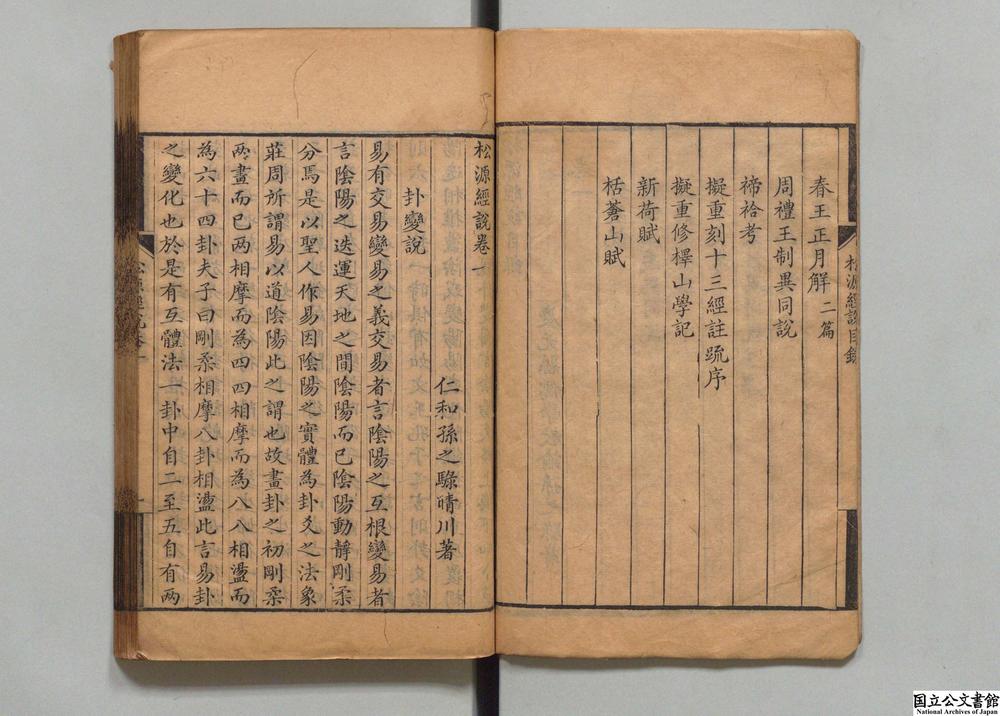 松源經說目錄
春王正月解二篇
周禮王制異同說
禘祫考
擬重刻十三經註疏序
擬重修樿山學記
新荷賦
栝蒼山賦
松源經說卷一
仁和孫之騄晴川著
卦變說
易有交易變易之義交易者言陰陽之互根變易者
言陰陽之迭運天地之間陰陽而已陰陽動靜剛柔
分焉是以聖人作易因陰陽之實體為卦爻之法象
莊周所謂易以道陰陽此之謂也故畫卦之初剛柔
兩畫而已兩相摩而為四四相摩而為八八相盪而
為六十四卦夫子曰剛柔相摩八卦相盪此言易卦
之變化也於是有互體法一卦中自二至五自有兩
松源經說卷一
一
国立公文書館
National Archives of Japan